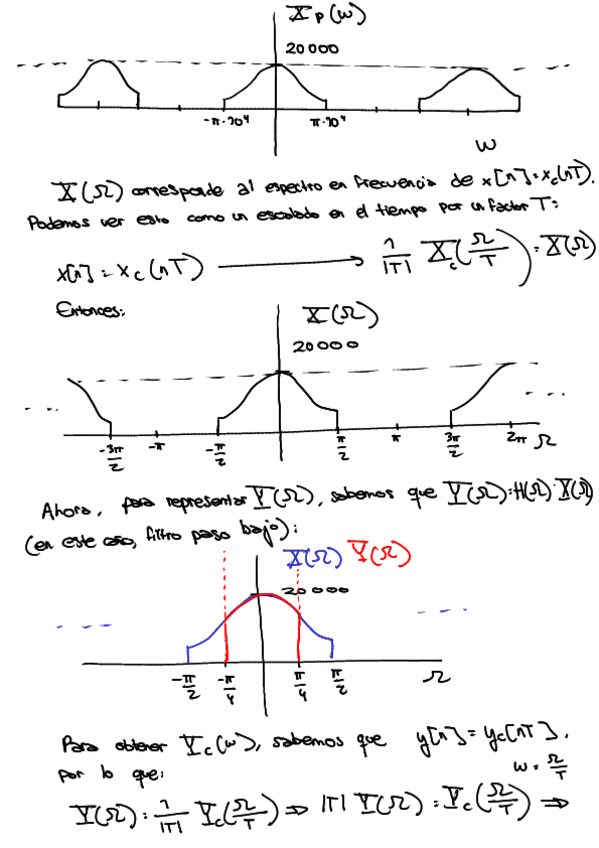 X_p(ω)
20000
-π·10⁴ π·10⁴
ω
X(Ω) corresponde al espectro en frecuencia de x[n]=x_c(nT).
Podemos ver esto como un escalado en el tiempo por un factor T:
x[n] = x_c(nT) ⟶ 1/|T| X_c(Ω/T) = X(Ω)
Entonces:
X(Ω)
20000
-3π/2 -π -π/2 π/2 π 3π/2 2π Ω
Ahora, para representar Y(Ω), sabemos que Y(Ω)=H(Ω)·X(Ω)
(en este caso, filtro paso bajo):
X(Ω) Y(Ω)
20000
-π/2 -π/4 π/4 π/2 Ω
Para obtener Y_c(ω), sabemos que y[n] = y_c[nT],
por lo que: ω = Ω/T
Y(Ω) = 1/|T| Y_c(Ω/T) ⇒ |T| Y(Ω) = Y_c(Ω/T) ⇒